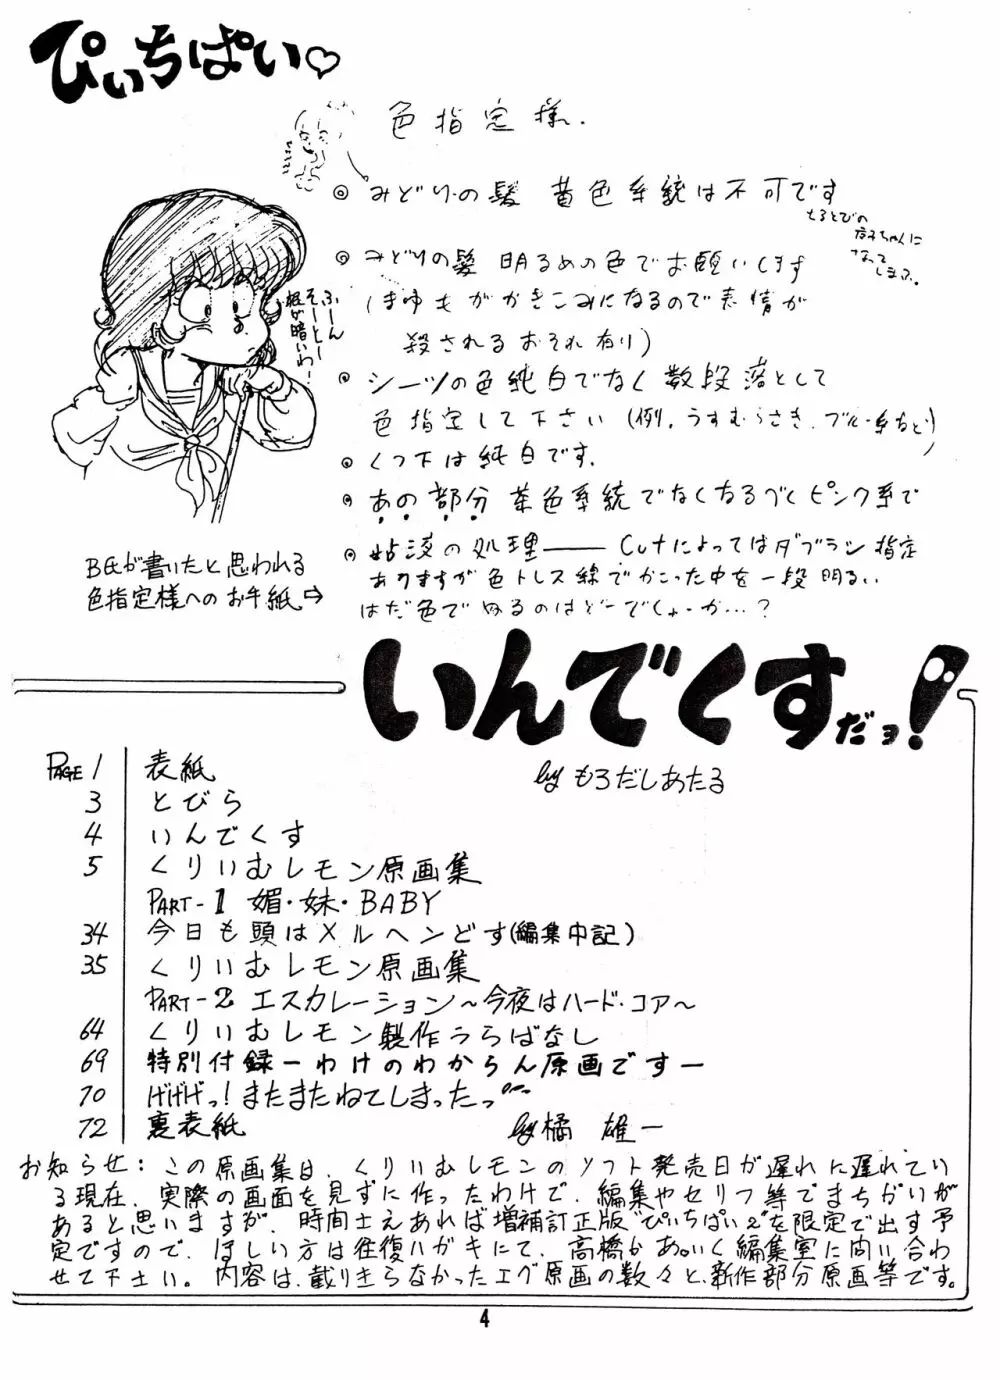 ぴぃちぱい♡
色指定様.
◎みどりの髪 黄色系統は不可です
もろとびの
ちゃんに
なって
しまう。
◎みどりの髪 明るめの色でお願いします
(まゆもがかきこみになるので表情が
殺されるおそれ有り)
◎シーツの色純白でなく数段落として
色指定して下さい(例.うすむらさき.ブルー系など)
◎くつ下は純白です.
◎あの部分 茶色系統でなくなるべくピンク系で
◎粘液の処理―― Cutによってはダブラシ指定
ありますが色トレス線でかこった中を一段明るい
はだ色でぬるのはどーでしょーか…?
ふーん
そーとー
根が暗いわー
B氏が書いたと思われる
色指定様へのお手紙⇨
いんでくすだョっ!
by もろだしあたる
PAGE 1 表紙
3 とびら
4 いんでくす
5 くりいむレモン原画集
PART-1 媚・妹・BABY
34 今日も頭はメルヘンどす(編集中記)
35 くりいむレモン原画集
PART-2 エスカレーション～今夜はハード・コア～
64 くりいむレモン製作うらばなし
69 特別付録ーわけのわからん原画ですー
70 げげげっ!またまたねてしまったっ
72 裏表紙 by 橘 雄一
お知らせ:この原画集は、くりいむレモンのソフト発売日が遅れに遅れてい
る現在、実際の画面を見ずに作ったわけで、編集やセリフ等でまちがいが
あると思いますが、時間さえあれば増補訂正版"ぴぃちぱい2"を限定で出す予
定ですので、ほしい方は往復ハガキにて、高橋かあ。いく編集室に問い合わ
せて下さい。内容は、載りきらなかったエグ原画の数々と、新作部分原画等です。
4